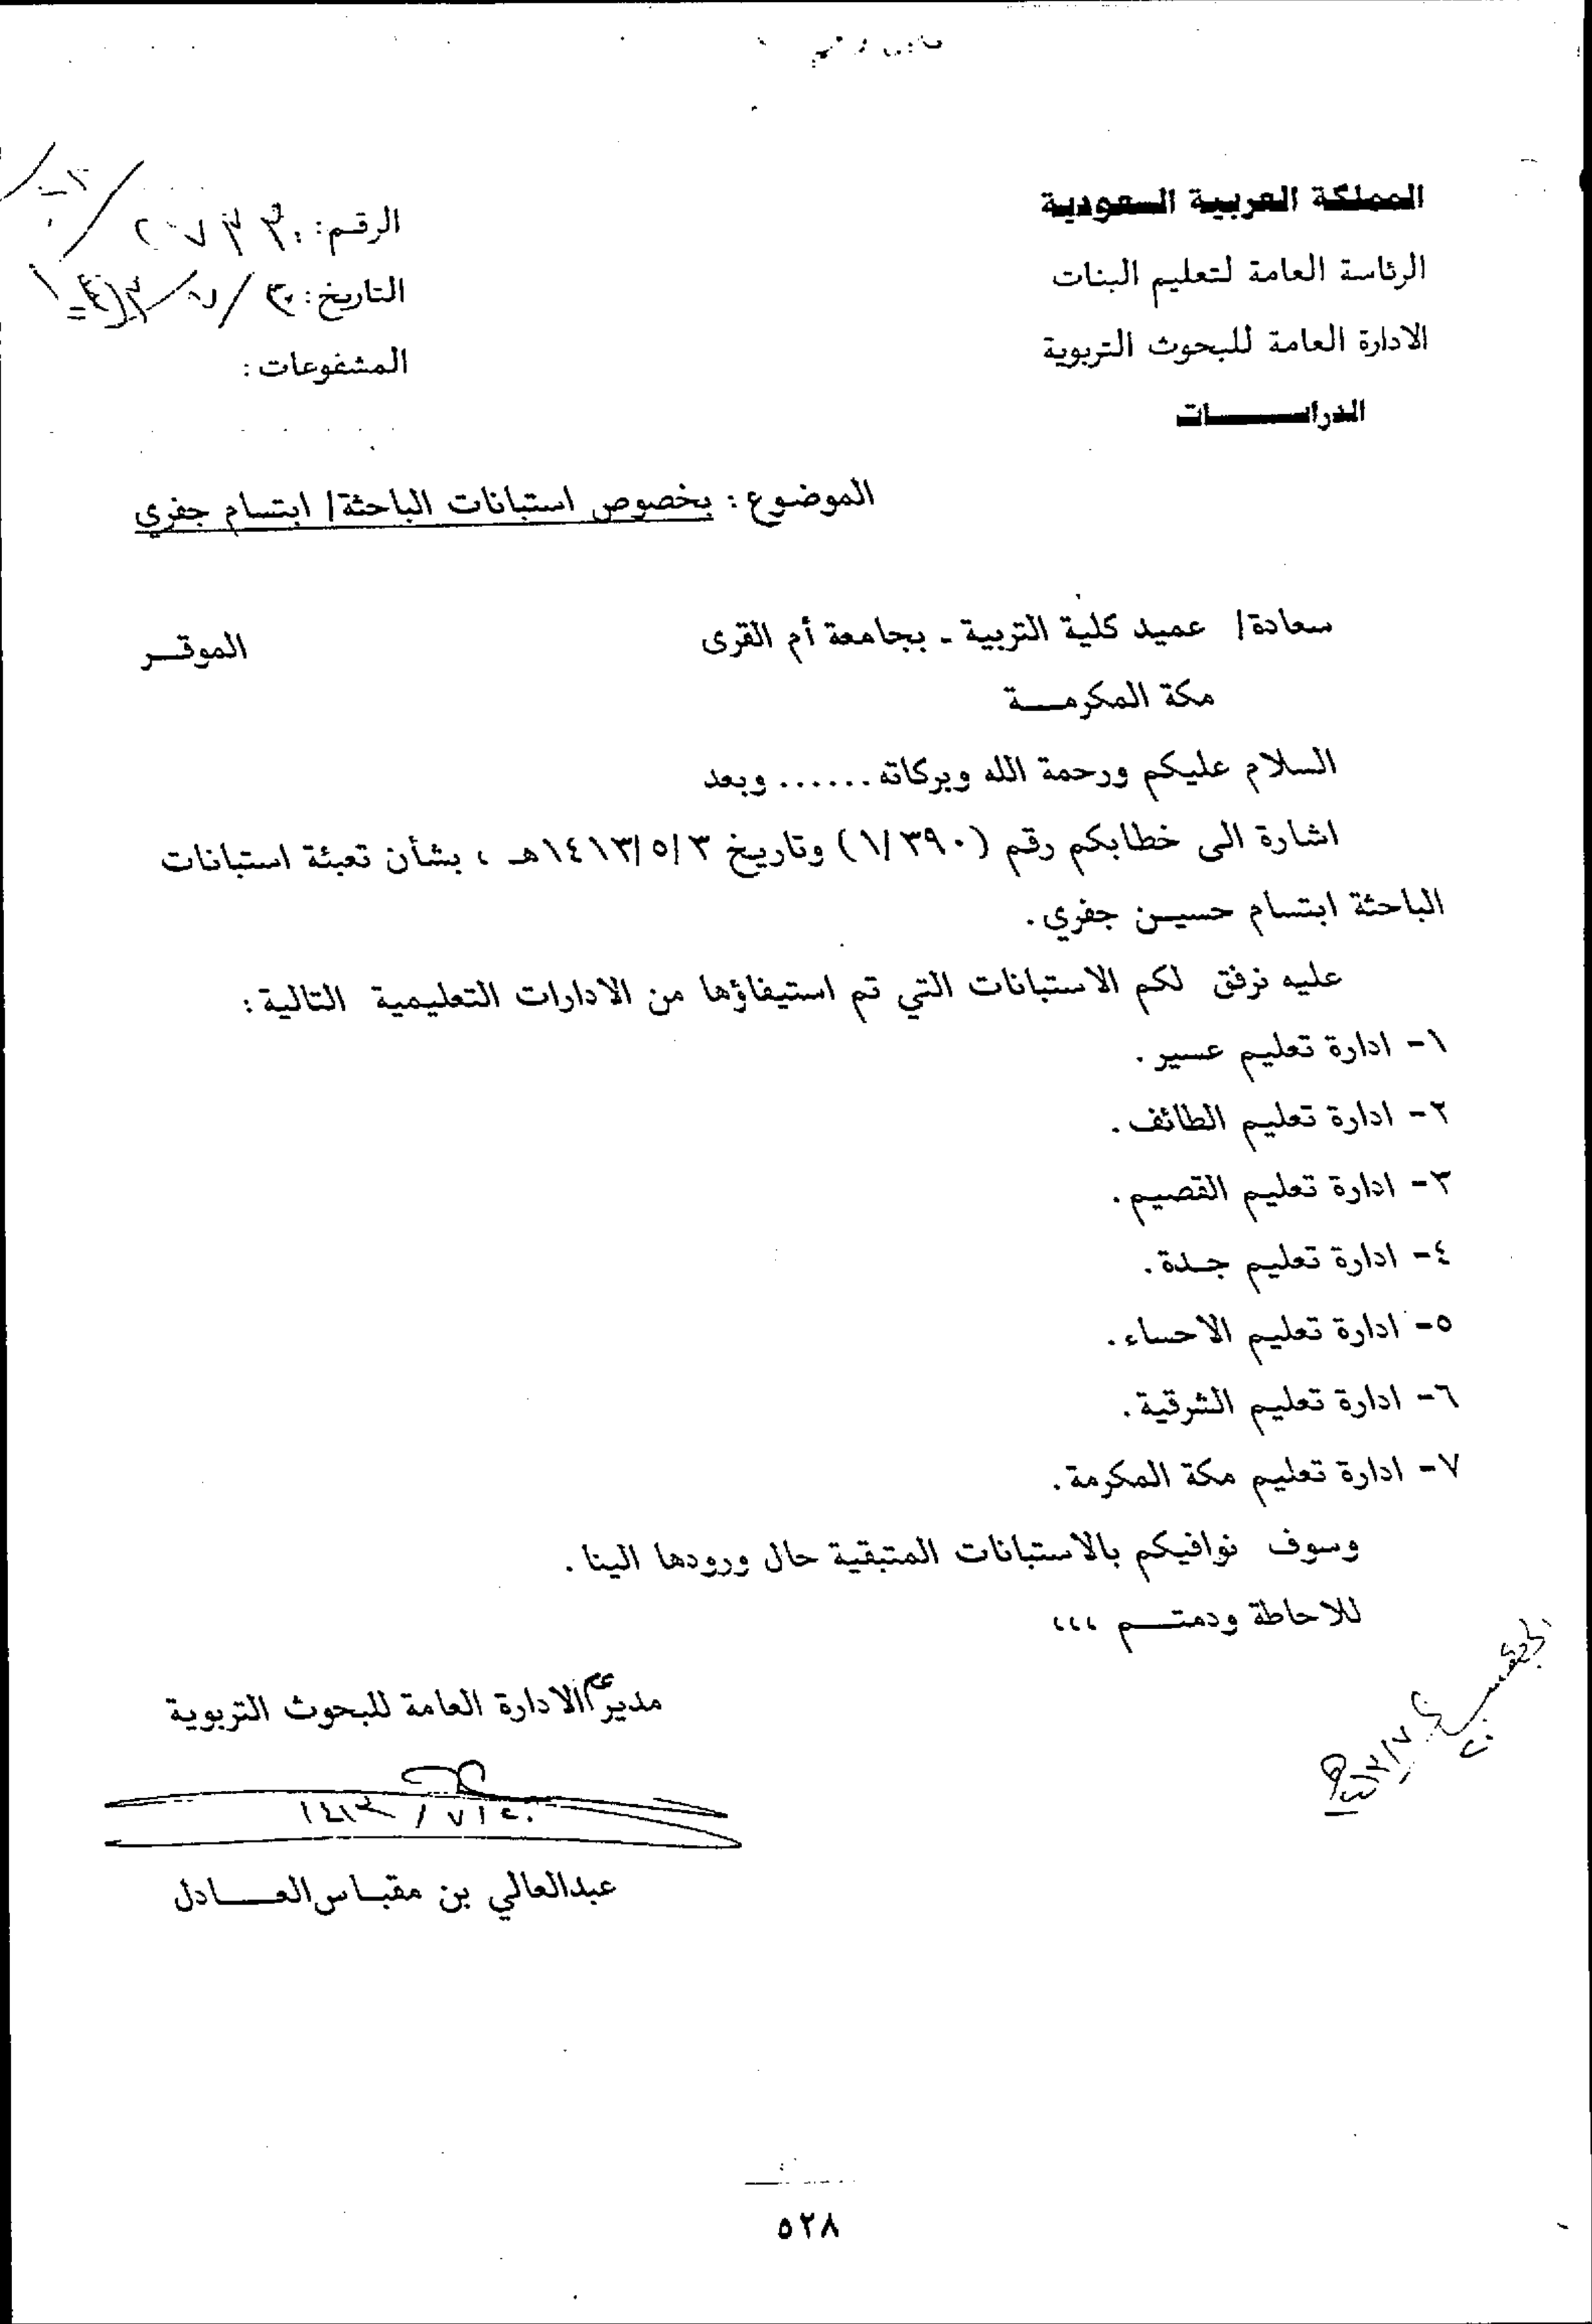 المملكة العربية السعودية
الرئاسة العامة لتعليم البنات
الادارة العامة للبحوث التربوية
الدراســـــات
الرقم:
التاريخ:
المشفوعات :
الموضوع : بخصوص استبانات الباحثة/ ابتسام جفري
سعادة/ عميد كلية التربية - بجامعة أم القرى الموقــر
مكة المكرمــة
السلام عليكم ورحمة الله وبركاته ...... وبعد
اشارة الى خطابكم رقم (١/٣٩٠) وتاريخ ١٤١٣/٥/٣هـ ، بشأن تعبئة استبانات
الباحثة ابتسام حسيـن جفري .
عليه نرفق لكم الاستبانات التي تم استيفاؤها من الادارات التعليمية التالية :
١- ادارة تعليم عسير .
٢- ادارة تعليم الطائف .
٣- ادارة تعليم القصيم .
٤- ادارة تعليم جـدة .
٥- ادارة تعليم الاحساء .
٦- ادارة تعليم الشرقية .
٧- ادارة تعليم مكة المكرمة .
وسوف نوافيكم بالاستبانات المتبقية حال ورودها الينا .
للاحاطة ودمتــم ،،،
مدير عام الادارة العامة للبحوث التربوية
١٤١٣ / ٧ / ٢٠
عبدالعالي بن مقبـاس العــــادل
٥٢٨